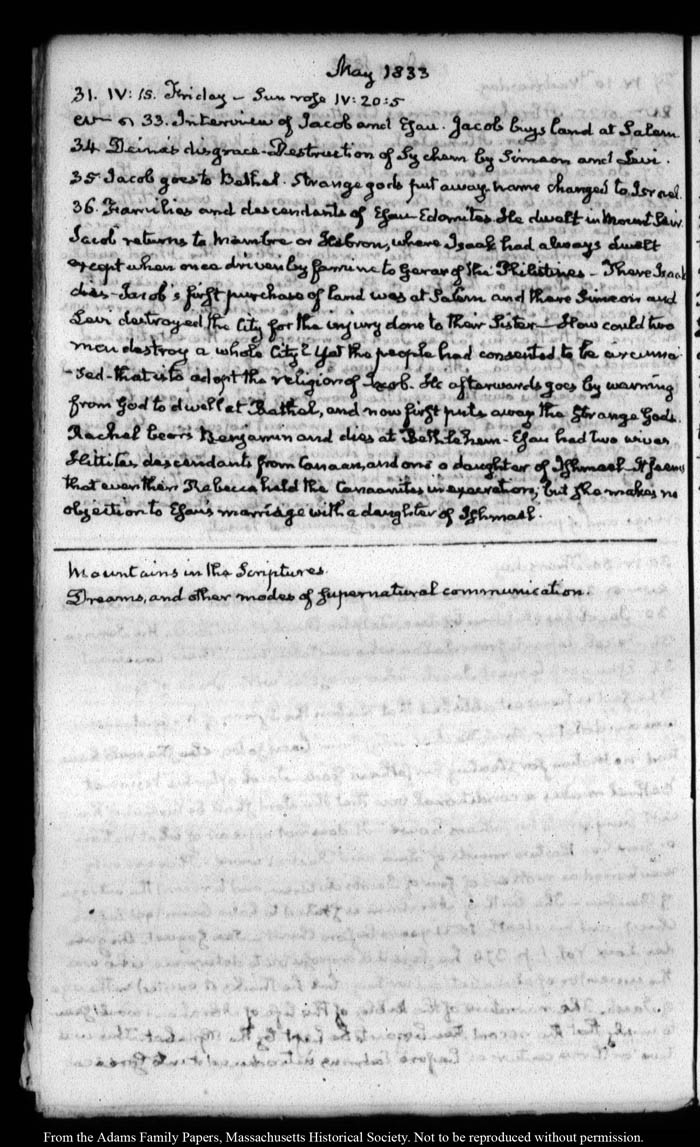 May 1833
31. IV: 15. Friday – Sun rose IV: 20:5
33. Interview of Jacob and Esau. Jacob buys land at Salem
34. Deina's disgrace – Destruction of Sychem by Simeon and Levi.
35 Jacob goes to Bethel. Strange gods put away. name changed to Israel
36. Families and descendants of Esau – Edomites. He dwelt in Mount Seir.
Jacob returns to Mambre or Hebron, where Isaak had always dwelt
except when once driven by famine to Gerar of the Philistines – There Isaak
dies – Jacob's first purchase of land was at Salem and there Simeon and
Levi destroyed the City for the injury done to their Sister – How could two
men destroy a whole City? Yet the people had consented to be circumci-
-sed – that is to adopt the religion of Jacob. He afterwards goes by warning
from God to dwell at Bethel, and now first puts away the Strange Gods.
Rachel bears Benjamin and dies at Bethlehem – Esau had two wives
Hittites, descendants from Canaan, and one a daughter of Ishmael – It seems
that even then Rebecca held the Canaanites in execration; but she makes no
objection to Esau's marriage with a daughter of Ishmael.
Mountains in the Scriptures.
Dreams, and other modes of supernatural communication.
From the Adams Family Papers, Massachusetts Historical Society. Not to be reproduced without permission.